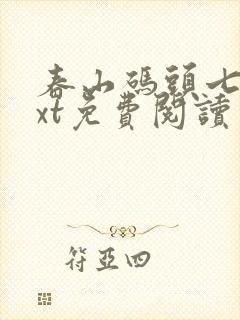 春山碼頭七
xt免費閱讀
符亞四